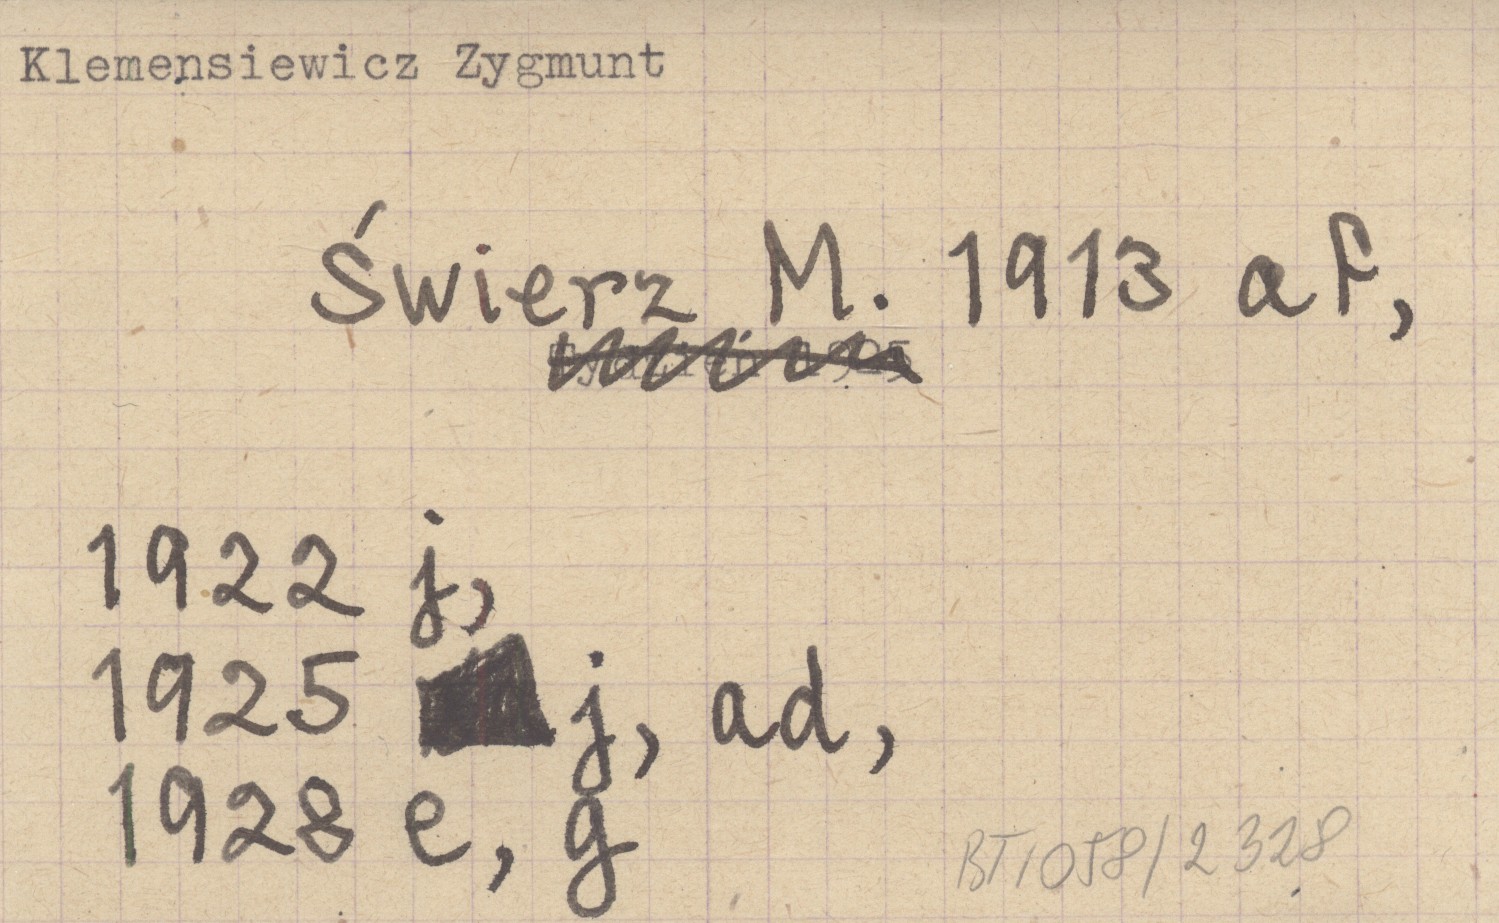 Klemensiewicz Zygmunt
Świerz M. 1913 af,
1922 j,
1925 j, ad,
1928 e, g
BT/058/2328